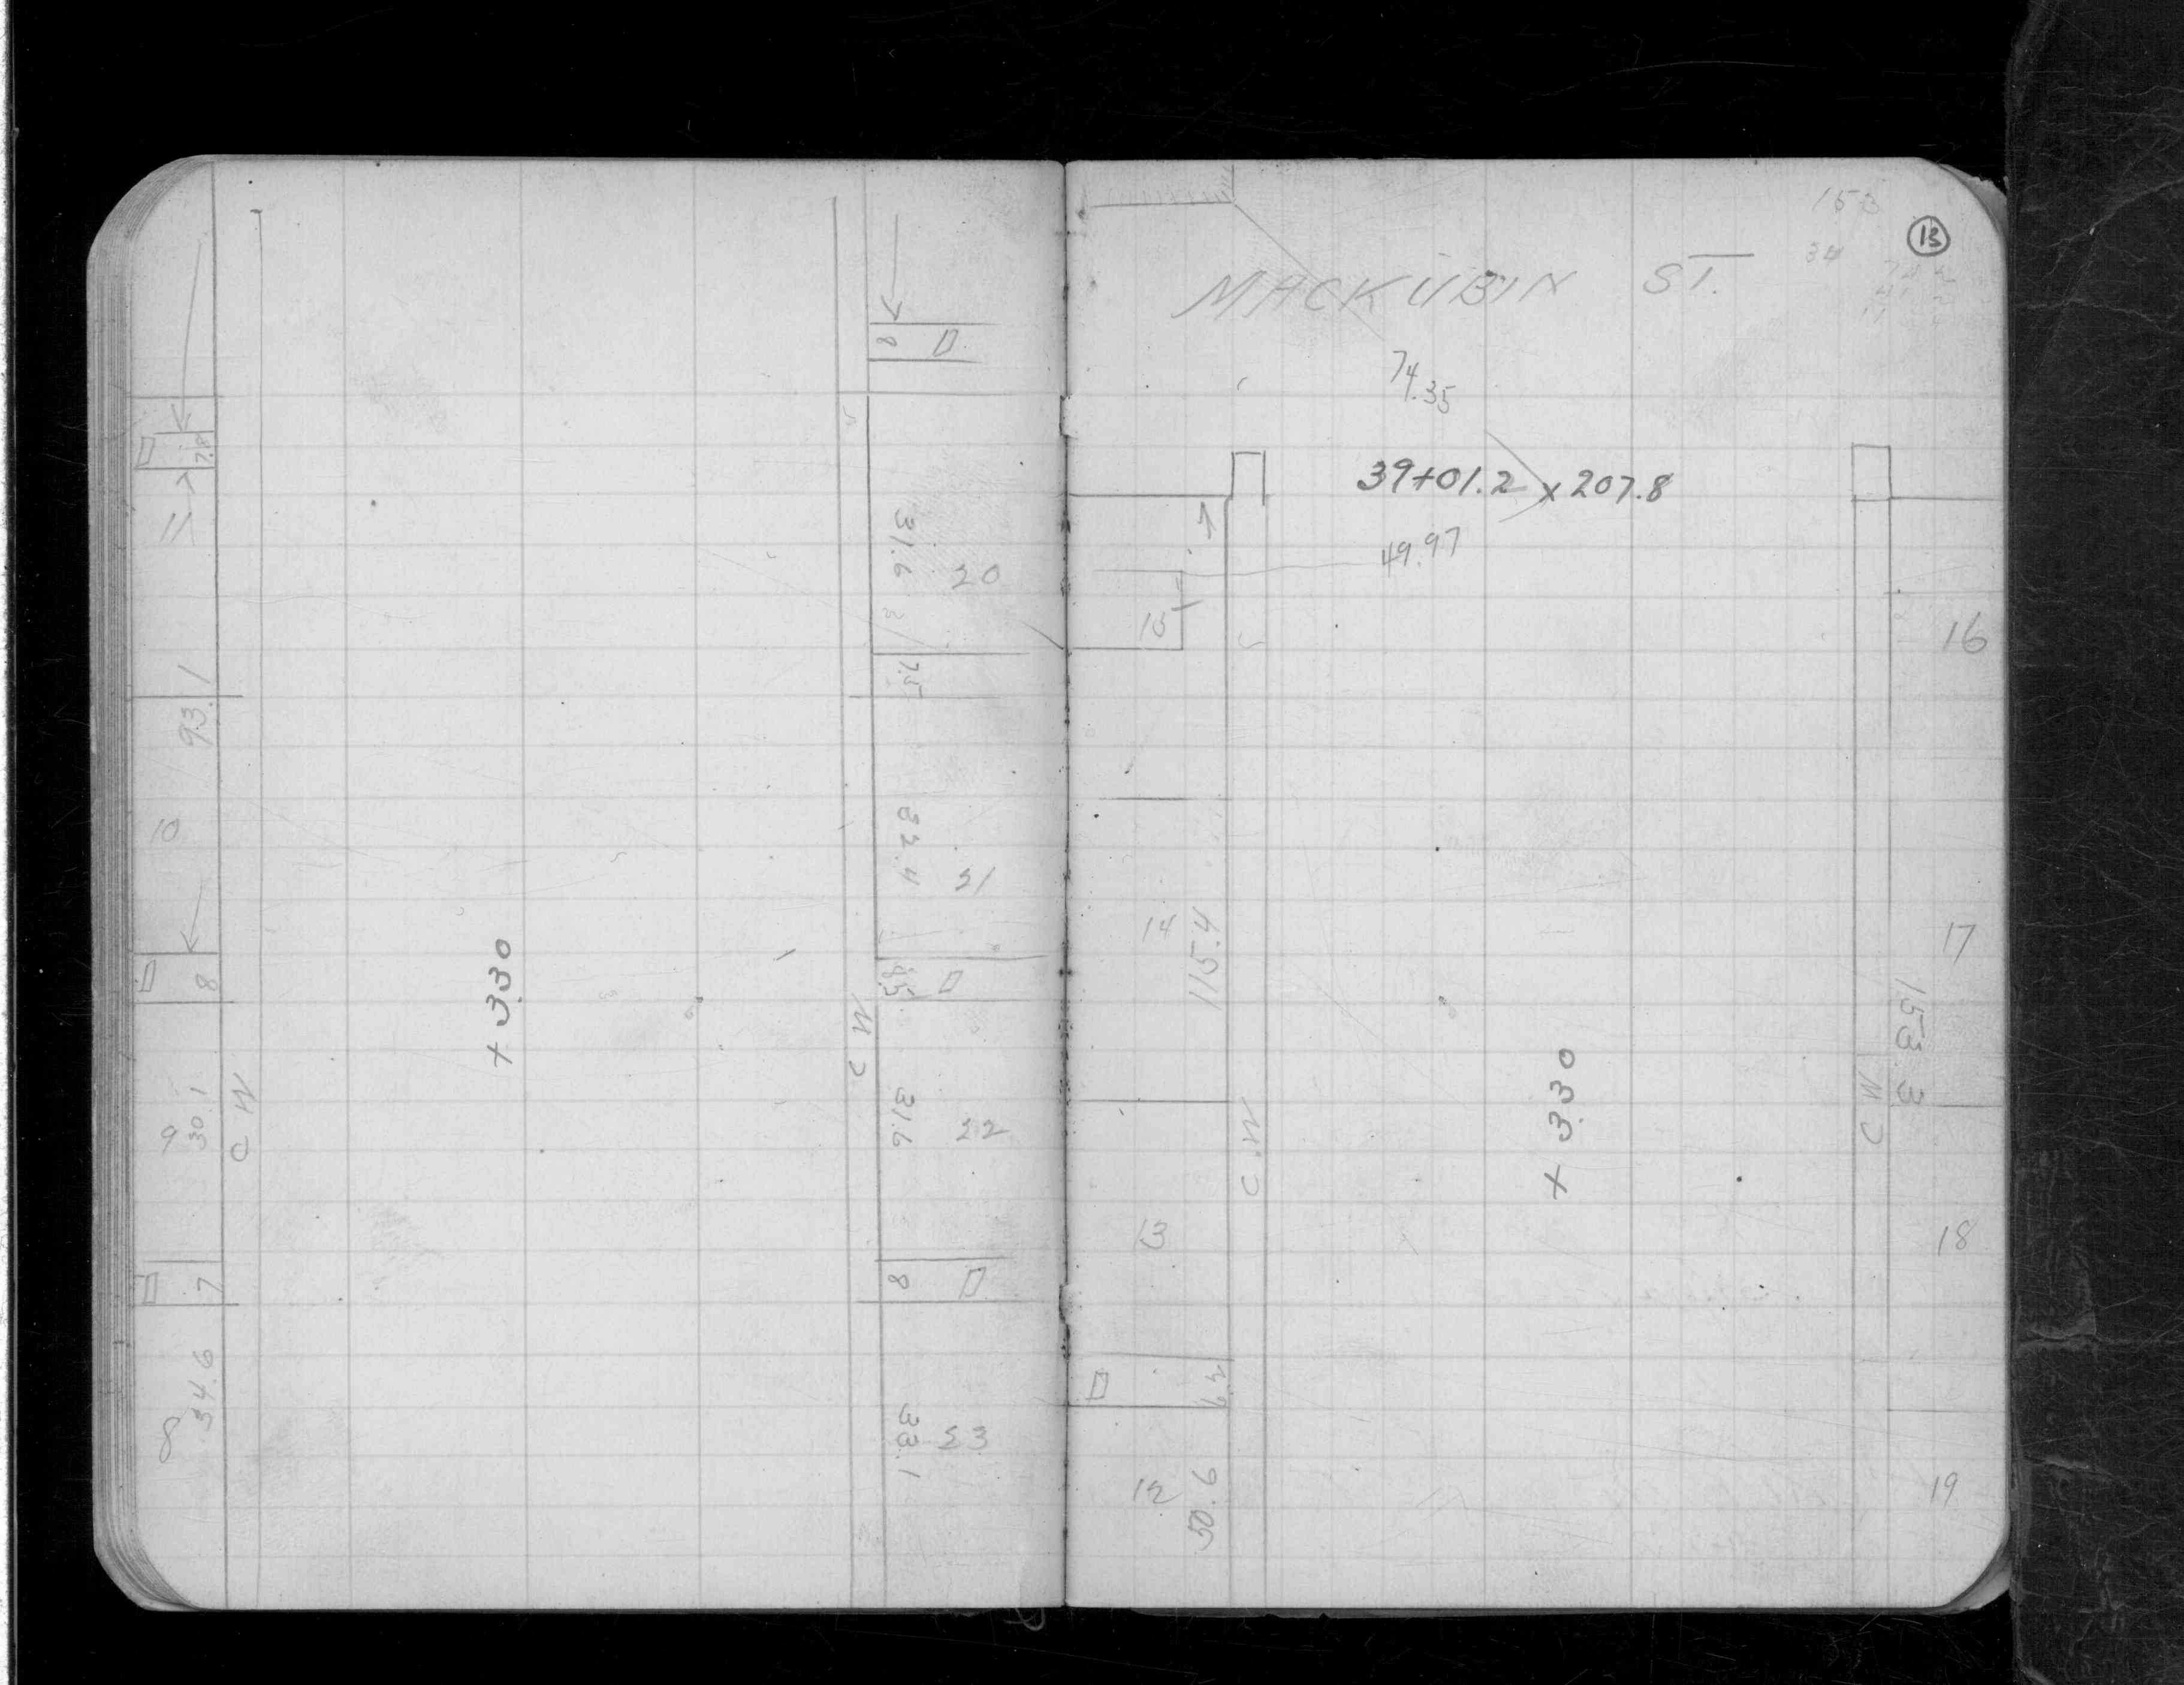 8
7.8
11
31.6
20
93.1
7.5
10
32.4
21
8
+ 330
C W
9
30.1
C W
31.6
22
7
8
8
34.6
33.1
23
13
153
34
MACKUBIN ST.
74.35
39+01.2 x 207.8
49.97
15
16
14
115.4
17
153.3
C W
+ 330
C W
13
18
12
50.6
19